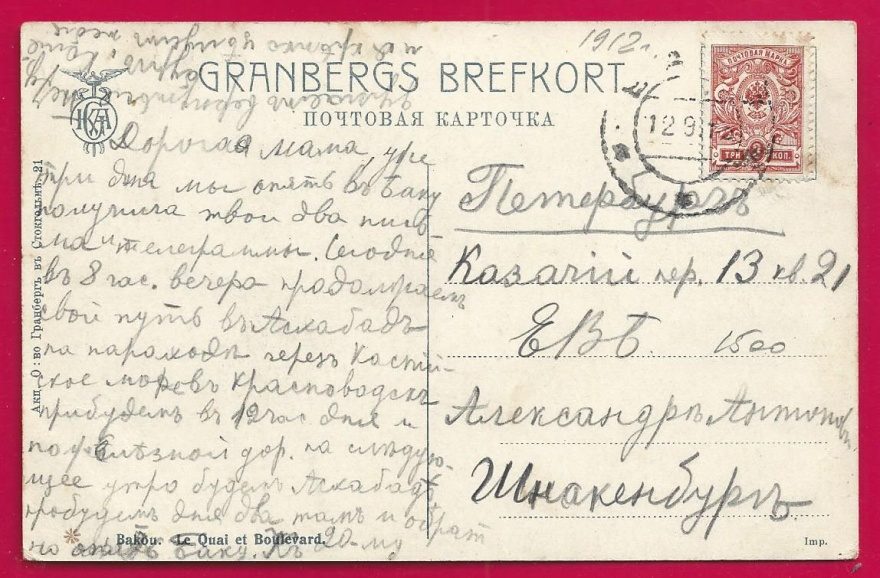 1912 г.
GRANBERGS BREFKORT
ПОЧТОВАЯ КАРТОЧКА
ПОЧТОВАЯ МАРКА
ТРИ 3 КОП.
12 9 12
Дорогая мама, уже
три дня мы опять въ Баку
получила твои два пись
ма и телеграммы. Сегодня
въ 8 час. вечера продолжаемъ
свой путь въ Асхабадъ
на пароходѣ черезъ Каспій-
ское море въ Красноводскъ
прибудемъ въ 12 час дня и
по желѣзной дор. на слѣдую-
щее утро будемъ Асхабадѣ,
пробудемъ дня два тамъ и обрат
но опять Баку. Къ 20-му
Петербургъ
Казачій пер. 13 кв. 21
ЕВБ. 1500
Александрѣ Антонов
Шнакенбургъ
Акц. О-во Гранбергъ въ Стокгольмѣ. 21
Bakou. Le Quai et Boulevard.
Imp.